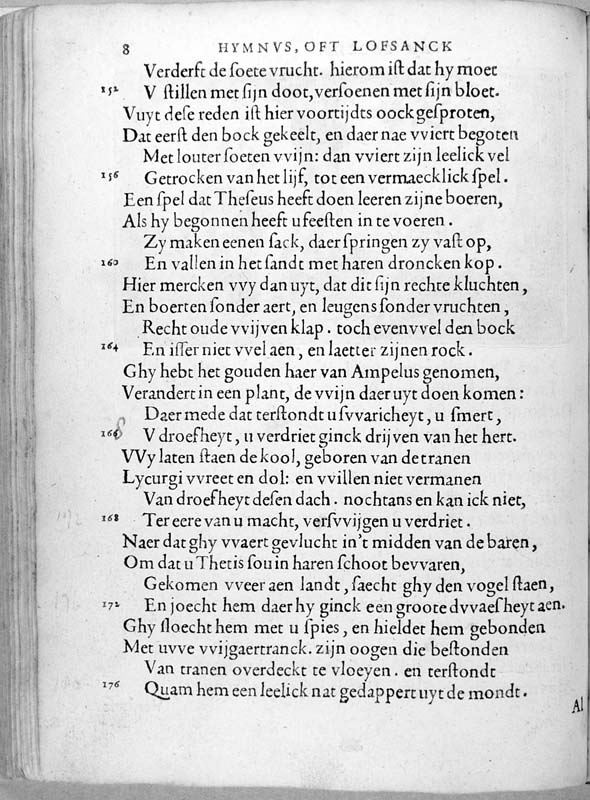 8 HYMNVS, OFT LOFSANCK
Verderft de ſoete vrucht. hierom iſt dat hy moet
152 V ſtillen met ſijn doot, verſoenen met ſijn bloet.
Vuyt deſe reden iſt hier voortijdts oock geſproten,
Dat eerſt den bock gekeelt, en daer nae vviert begoten
Met louter ſoeten vvijn: dan vviert zijn leelick vel
156 Getrocken van het lijf, tot een vermaecklick ſpel.
Een ſpel dat Theſeus heeft doen leeren zijne boeren,
Als hy begonnen heeft u feeſten in te voeren.
Zy maken eenen ſack, daer ſpringen zy vaſt op,
160 En vallen in het ſandt met haren droncken kop.
Hier mercken vvy dan uyt, dat dit ſijn rechte kluchten,
En boerten ſonder aert, en leugens ſonder vruchten,
Recht oude vvijven klap. toch evenvvel den bock
164 En iſſer niet vvel aen, en laetter zijnen rock.
Ghy hebt het gouden haer van Ampelus genomen,
Verandert in een plant, de vvijn daer uyt doen komen:
Daer mede dat terſtondt u ſvvaricheyt, u ſmert,
1648 V droefheyt, u verdriet ginck drijven van het hert.
VVy laten ſtaen de kool, geboren van de tranen
Lycurgi vvreet en dol: en vvillen niet vermanen
Van droefheyt deſen dach. nochtans en kan ick niet,
168 Ter eere van u macht, verſvvijgen u verdriet.
Naer dat ghy vvaert gevlucht in't midden van de baren,
Om dat u Thetis ſou in haren ſchoot bevvaren,
Gekomen vveer aen landt, ſaecht ghy den vogel ſtaen,
172 En joecht hem daer hy ginck een groote dvvaeſheyt aen.
Ghy ſloecht hem met u ſpies, en hieldet hem gebonden
Met uvve vvijgaertranck. zijn oogen die beſtonden
Van tranen overdeckt te vloeyen. en terſtondt
176 Quam hem een leelick nat gedappert uyt de mondt.
Al